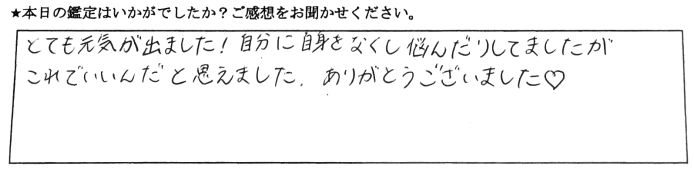 ★本日の鑑定はいかがでしたか？ご感想をお聞かせください。
とても元気が出ました！自分に自身をなくし悩んだりしてましたが
これでいいんだと思えました、ありがとうございました♡